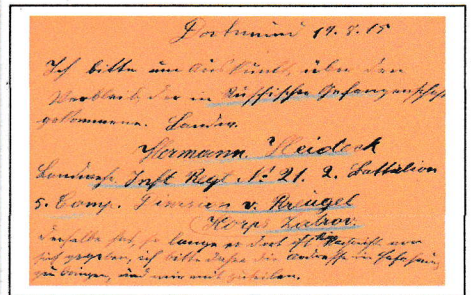 Dortmund 19.8.15
Ich bitte um Auskunft, über den
Verbleib, der in Russischer Gefangenschaft
gekommene. Landw.
Hermann Heideck
Landwh. Inft Regt. № 21. 2. Battalion
5. Comp. Division v. Kreugel
Korps Zabrov
Derselbe hat, so lange er dort ist kein Nachricht von
sich gegeben, ich bitte daher die Adresse in Erfahrung
zu bringen, und mir mit zuteilen.